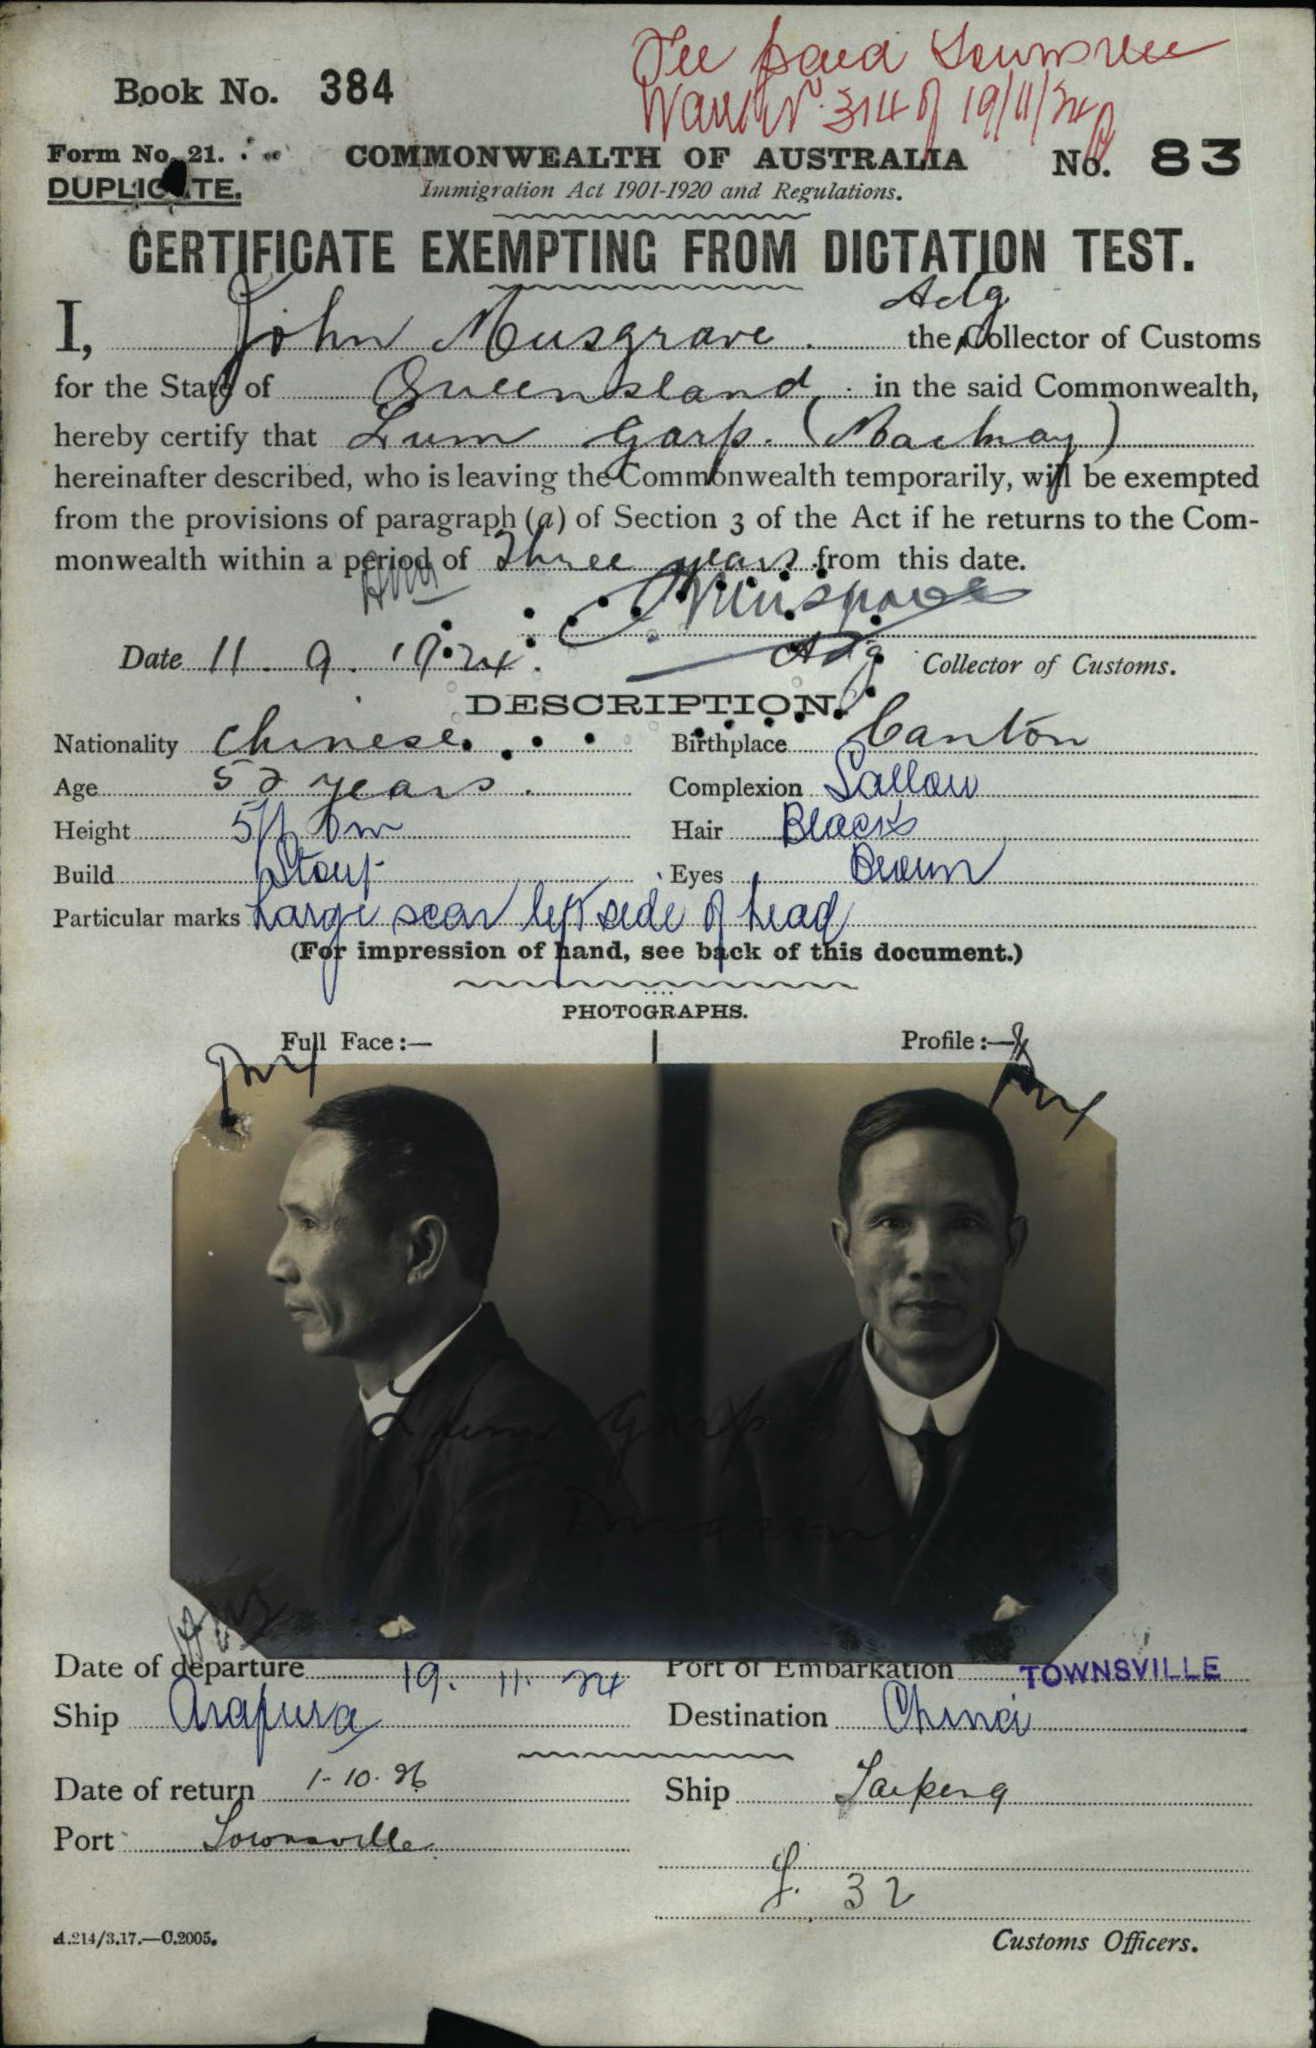 Fee paid Townsville
Warrt No. 314 of 19/11/24
Book No. 384
Form No. 21.
COMMONWEALTH OF AUSTRALIA No. 83
DUPLICATE.
Immigration Act 1901-1920 and Regulations.
CERTIFICATE EXEMPTING FROM DICTATION TEST.
I, John Musgrave the Actg Collector of Customs
for the State of Queensland in the said Commonwealth,
hereby certify that Lum Garp. (Mackay)
hereinafter described, who is leaving the Commonwealth temporarily, will be exempted
from the provisions of paragraph (a) of Section 3 of the Act if he returns to the Com-
monwealth within a period of Three years from this date.
Musgrave
Date 11. 9. 1924. Actg Collector of Customs.
DESCRIPTION.
Nationality Chinese. Birthplace Canton
Age 52 years. Complexion Sallow
Height 5ft 0in Hair Black
Build Stout Eyes Brown
Particular marks Large scar left side of head
(For impression of hand, see back of this document.)
PHOTOGRAPHS.
Full Face:— Profile:—
Lum Garp
Date of departure 19. 11. 24 Port of Embarkation TOWNSVILLE
Ship Arafura Destination China
Date of return 1-10-26 Ship Taiping
Port Townsville
32
A.214/3.17.—C.2005. Customs Officers.